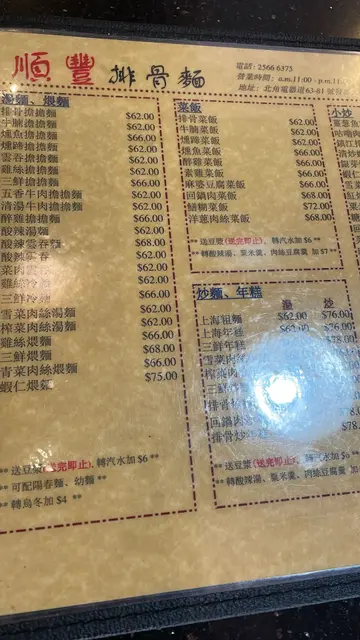 順豐排骨麵
電話: 2566 6375
營業時間: a.m.11:00 - p.m.11
地址: 北角電器道63-81號
湯麵、煨麵
排骨擔擔麵 $62.00
牛腩擔擔麵 $62.00
燻魚擔擔麵 $66.00
燻蹄擔擔麵 $62.00
雲吞擔擔麵 $62.00
雞絲擔擔麵 $62.00
三鮮擔擔麵 $66.00
五香牛肉擔擔麵 $62.00
清湯牛肉擔擔麵 $62.00
醉雞擔擔麵 $66.00
酸辣湯麵 $62.00
酸辣雲吞麵 $68.00
酸辣雲吞 $62.00
菜肉雲吞 $62.00
雞絲冷麵 $62.00
三鮮冷麵 $66.00
雪菜肉絲湯麵 $62.00
榨菜肉絲湯麵 $62.00
雞絲煨麵 $66.00
三鮮煨麵 $68.00
青菜肉絲煨麵 $66.00
蝦仁煨麵 $75.00
** 送豆漿(送完即止), 轉汽水加 $6 **
** 可配陽春麵、幼麵 **
** 轉烏冬加 $4 **
菜飯
排骨菜飯 $62.00
牛腩菜飯 $62.00
燻蹄菜飯 $62.00
燻魚菜飯 $66.00
醉雞菜飯 $66.00
素雞菜飯 $66.00
麻婆豆腐菜飯 $66.00
回鍋肉菜飯 $68.00
鱔糊菜飯 $72.00
洋蔥肉絲菜飯 $68.00
** 送豆漿(送完即止)、轉汽水加 $6 **
** 轉酸辣湯、粟米羹、肉絲豆腐羹 加 $7 **
炒麵、年糕
湯 炒
上海粗麵 $62.00 $76.00
上海年糕 $76.00
三鮮年糕 $78.00
雪菜肉
榨菜
三鮮
排骨
回鍋肉
排骨炒年 $78.
** 送豆漿(送完即止)、轉汽水加 $6 **
** 轉酸辣湯、粟米羹、肉絲豆腐羹
小炒